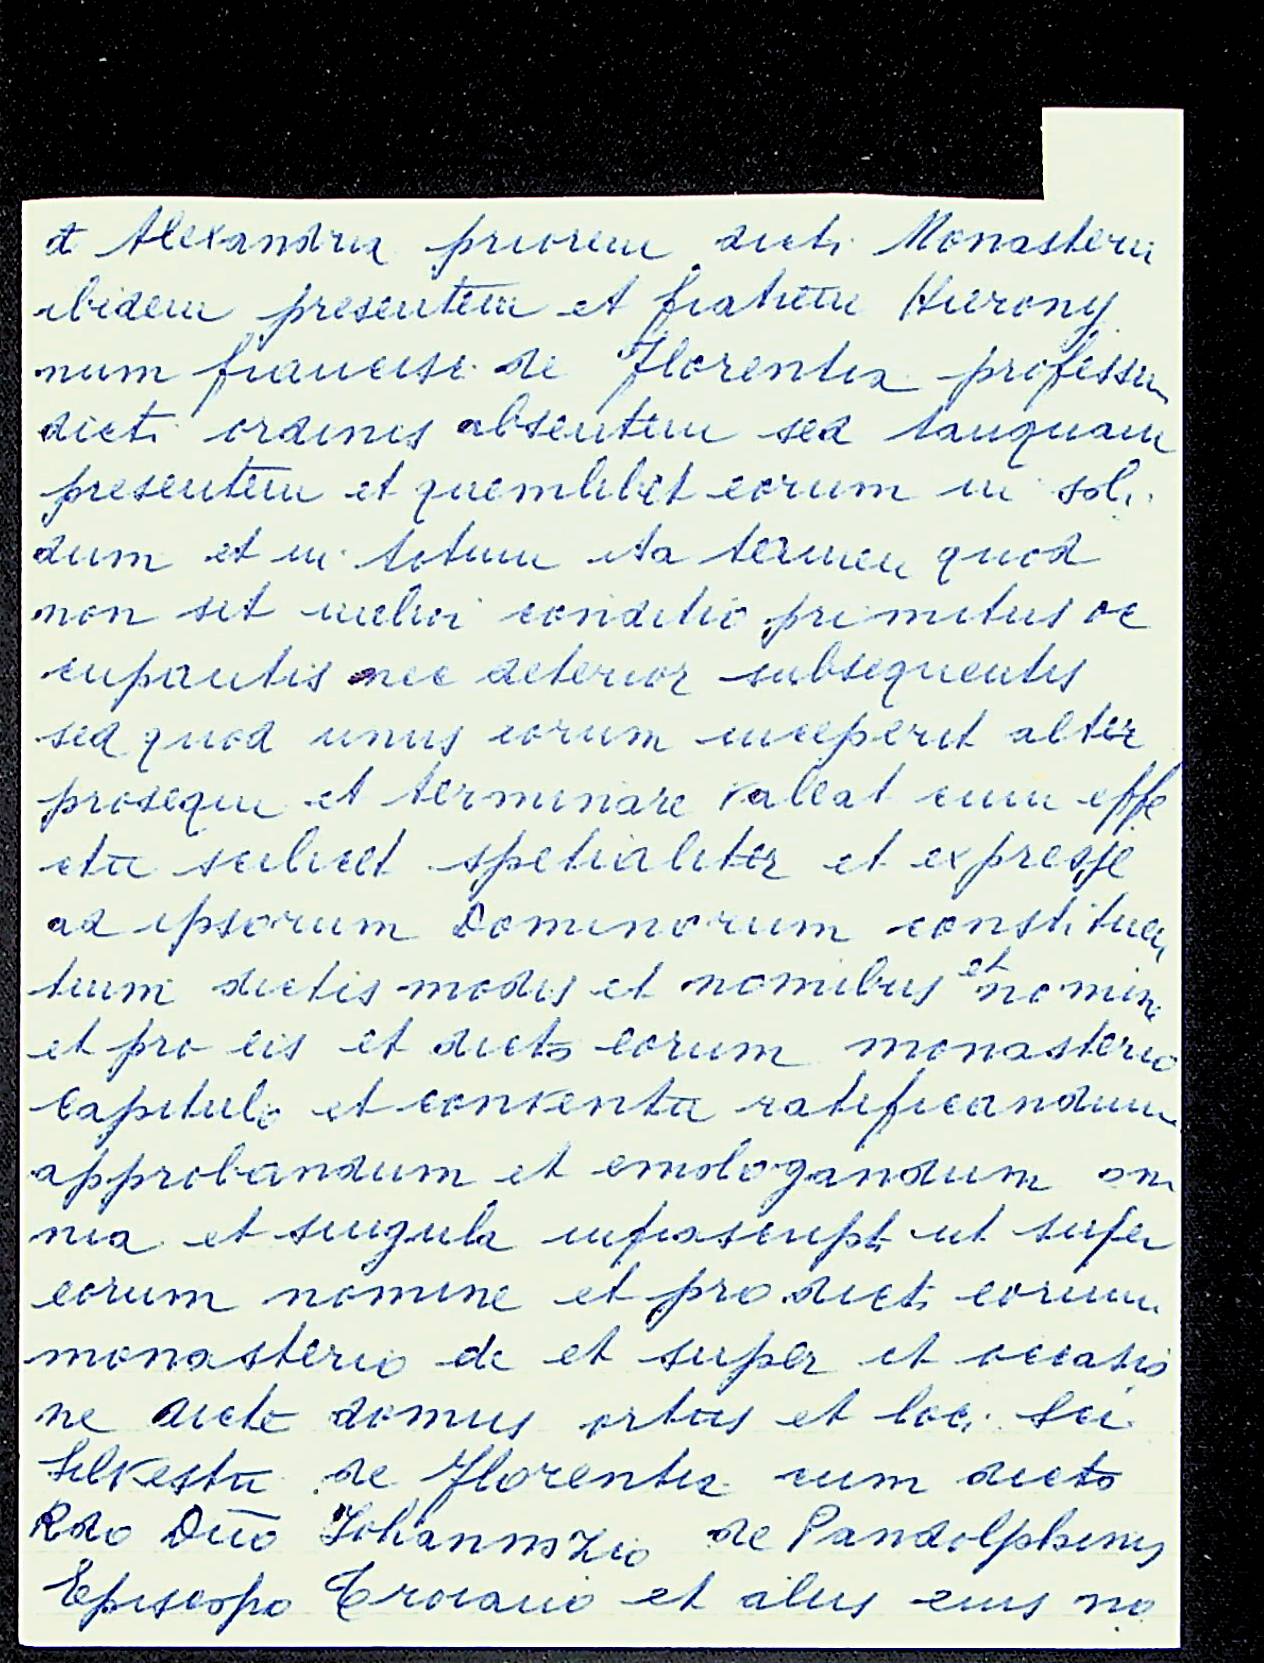 et Alexandria priorem dicti Monasterii
ibidem presentem et fratrem Hierony
num francisci de Florentia professum
dicti ordinis absentem sed tanquam
presentem et quemlibet eorum in soli
dum et in totum ita tamen quod
non sit melior conditio primitus oc
cupantis nec deterior subsequentis
sed quod unus eorum inceperit alter
prosequi et terminare valeat cum effe
ctu scilicet spetialiter et expresse
ad ipsorum Dominorum constituen
tium dictis modis et nomibus et nomine
et pro eis et dicto eorum monasterio
Capitulo et conventu ratificandum
approbandum et emologandum om
nia et singula infrascripta ut supra
eorum nomine et pro dicto eorum
monasterio de et super et occasio
ne dicte domus ortus et loci Sci
Silvestri de Florentia cum dicto
Rdo Dno Johannozio de Pandolphinis
Episcopo Troiano et aliis eius no